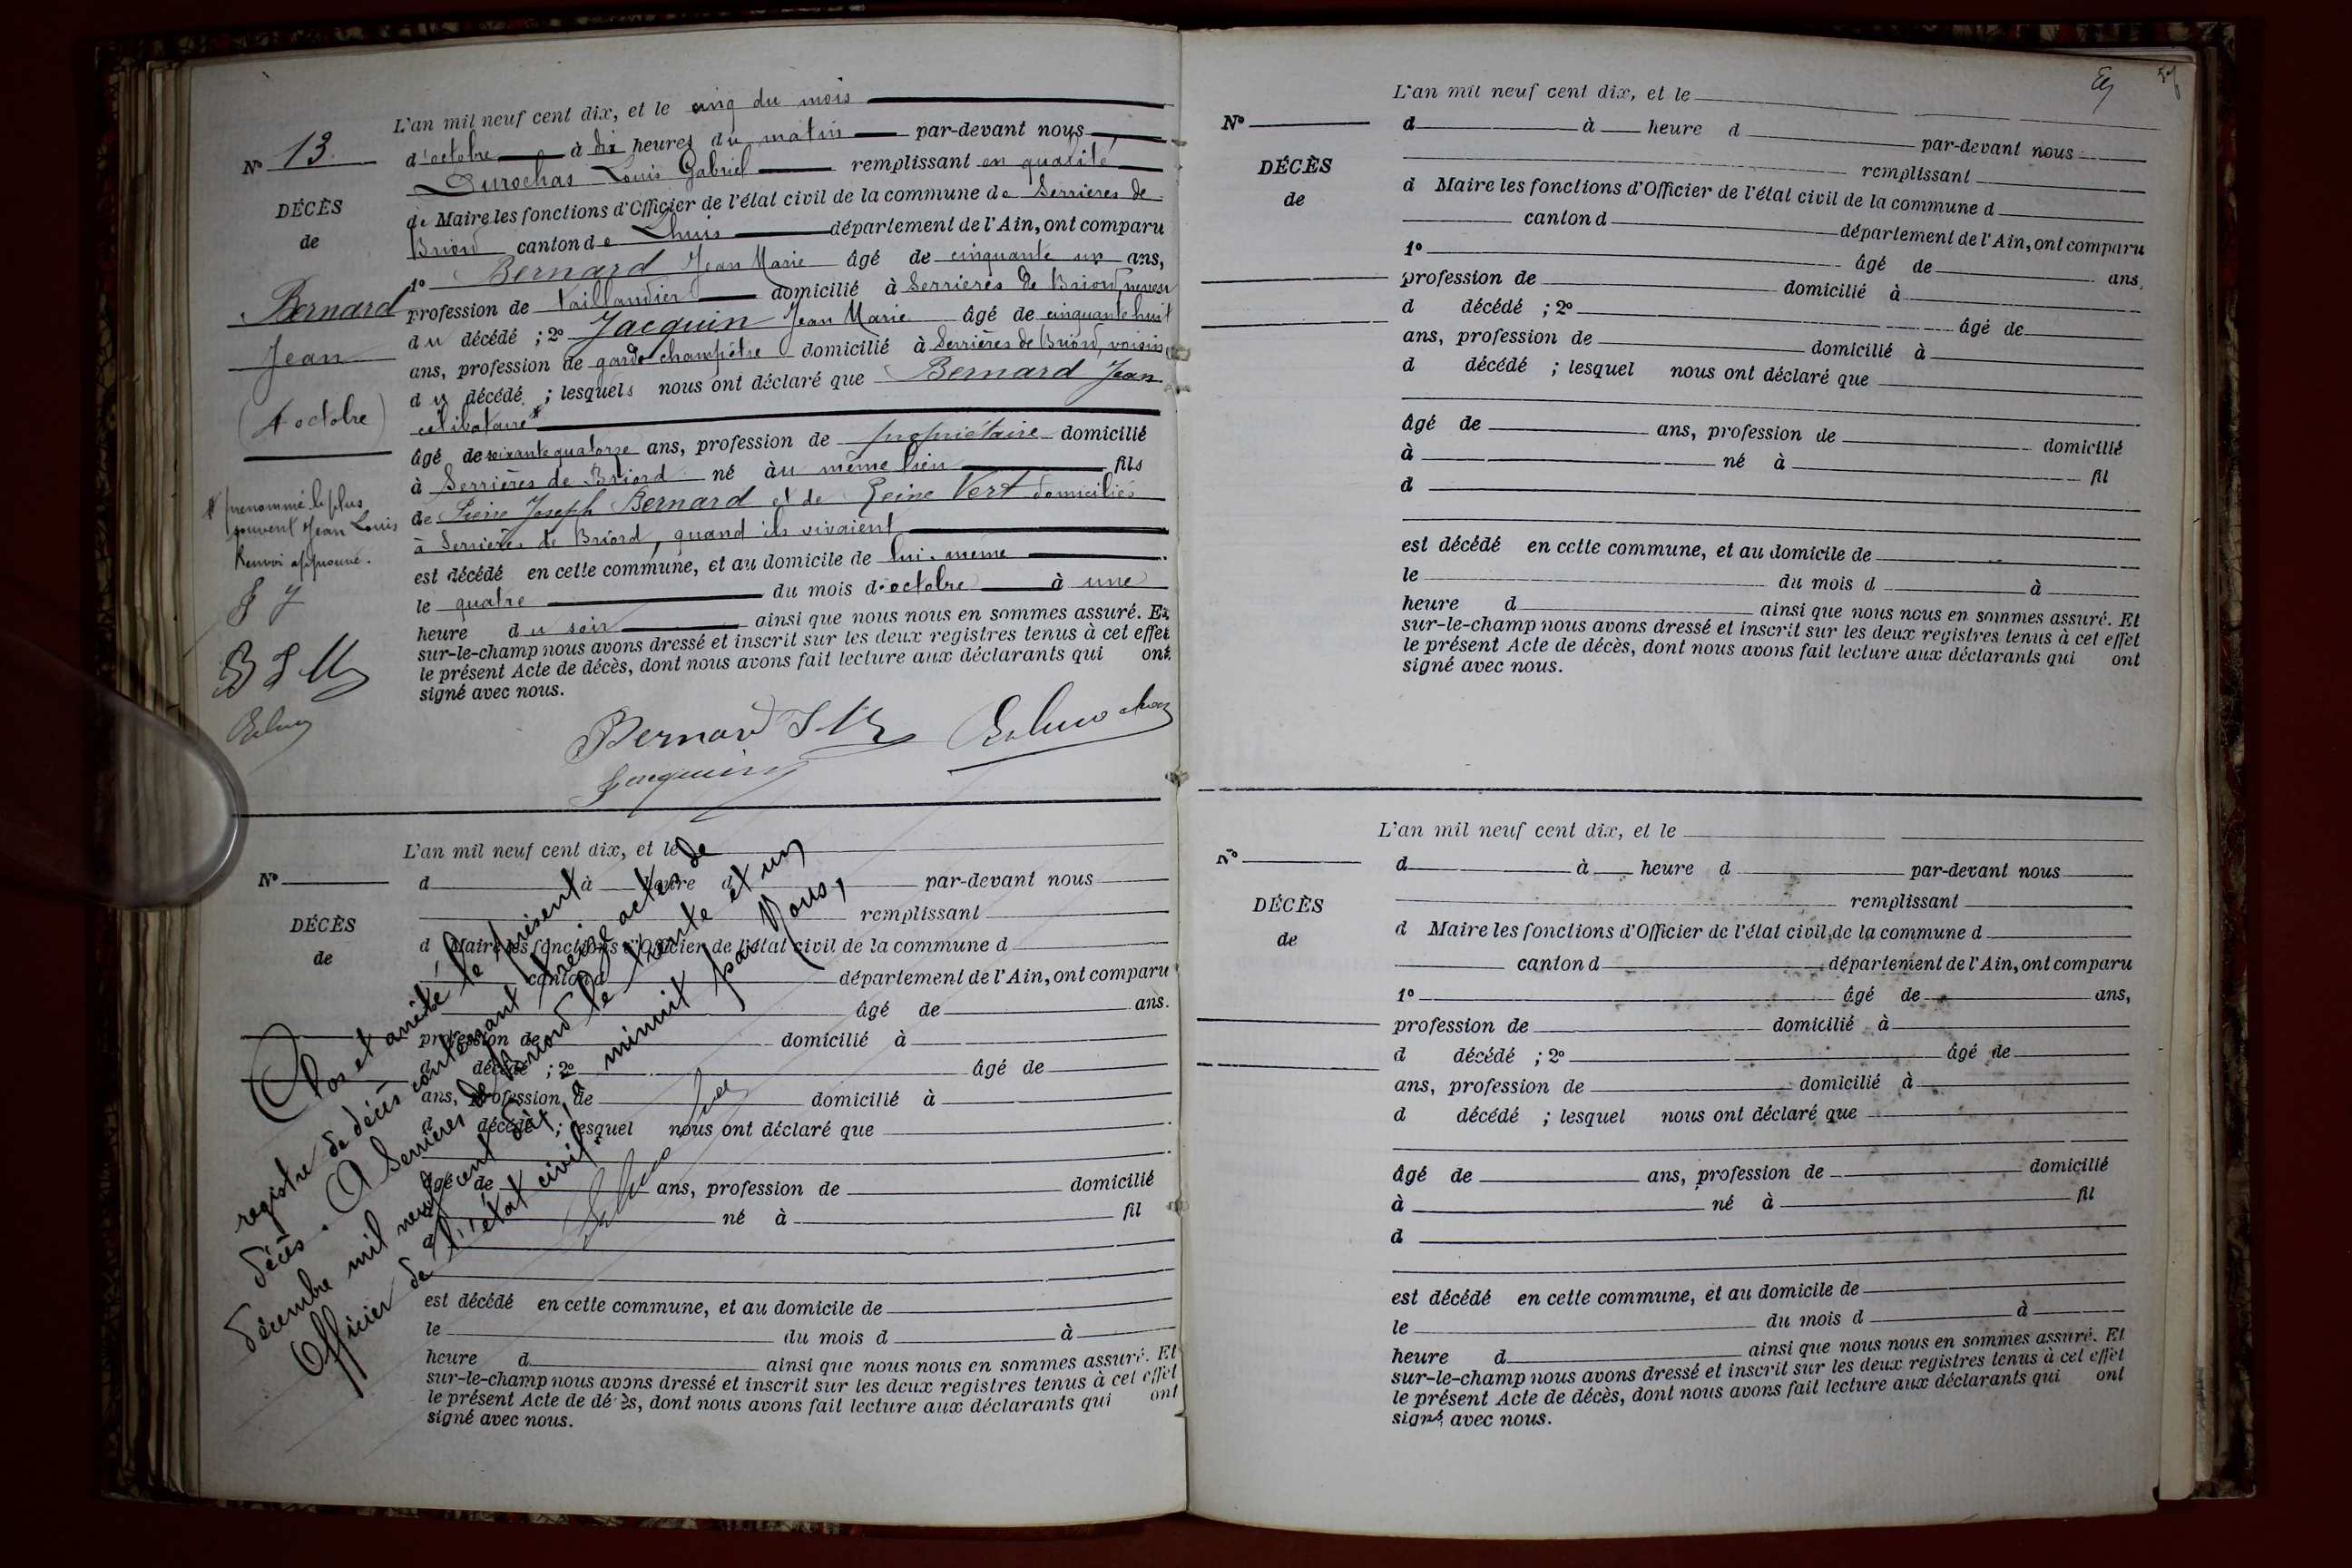 L'an mil neuf cent dix, et le cinq du mois
N° 13
d'octobre à dix heures du matin par-devant nous
Durochas Louis Gabriel remplissant en qualité
DÉCÈS
de Maire les fonctions d'Officier de l'état civil de la commune de Serrières de
de
Briord canton de Lhuis département de l'Ain, ont comparu
1° Bernard Jean Marie âgé de cinquante un ans,
Bernard
profession de taillandier domicilié à Serrières de Briord, neveu
du décédé ; 2° Jacquin Jean Marie âgé de cinquante huit
Jean
ans, profession de garde champêtre domicilié à Serrières de Briord, voisin
du décédé ; lesquels nous ont déclaré que Bernard Jean
(4 octobre)
célibataire *
âgé de soixante quatorze ans, profession de propriétaire domicilié
à Serrières de Briord né au même lieu fils
* prénommé le plus
souvent Jean Louis
Renvoi approuvé.
de Pierre Joseph Bernard et de Reine Vert domiciliés
à Serrières de Briord, quand ils vivaient
est décédé en cette commune, et au domicile de lui-même
le quatre du mois d'octobre à une
heure du soir ainsi que nous nous en sommes assuré. Et
sur-le-champ nous avons dressé et inscrit sur les deux registres tenus à cet effet
le présent Acte de décès, dont nous avons fait lecture aux déclarants qui ont
signé avec nous.
Bernard J M
Jacquin
L'an mil neuf cent dix, et le
N°
d à heure d par-devant nous
remplissant
DÉCÈS
d Maire les fonctions d'Officier de l'état civil de la commune d
de
canton d département de l'Ain, ont comparu
âgé de ans.
profession de domicilié à
d décédé ; 2° âgé de
ans, profession de domicilié à
d décédé ; lesquel nous ont déclaré que
âgé de ans, profession de domicilié
né à fil
d
est décédé en cette commune, et au domicile de
le du mois d à
heure d ainsi que nous nous en sommes assuré. Et
sur-le-champ nous avons dressé et inscrit sur les deux registres tenus à cet effet
le présent Acte de décès, dont nous avons fait lecture aux déclarants qui ont
signé avec nous.
Clos et arrêté le présent
registre de décès contenant treize actes de
décès. A Serrières de Briord le trente et un
décembre mil neuf cent dix, à minuit par Nous,
Officier de l'état civil.
L'an mil neuf cent dix, et le
N°
d à heure d par-devant nous
DÉCÈS
remplissant
de
d Maire les fonctions d'Officier de l'état civil de la commune d
canton d département de l'Ain, ont comparu
1° âgé de ans,
profession de domicilié à
d décédé ; 2° âgé de
ans, profession de domicilié à
d décédé ; lesquel nous ont déclaré que
âgé de ans, profession de domicilié
à né à fil
d
est décédé en cette commune, et au domicile de
le du mois d à
heure d ainsi que nous nous en sommes assuré. Et
sur-le-champ nous avons dressé et inscrit sur les deux registres tenus à cet effet
le présent Acte de décès, dont nous avons fait lecture aux déclarants qui ont
signé avec nous.
L'an mil neuf cent dix, et le
N°
d à heure d par-devant nous
remplissant
DÉCÈS
d Maire les fonctions d'Officier de l'état civil de la commune d
de
canton d département de l'Ain, ont comparu
1° âgé de ans,
profession de domicilié à
d décédé ; 2° âgé de
ans, profession de domicilié à
d décédé ; lesquel nous ont déclaré que
âgé de ans, profession de domicilié
à né à fil
d
est décédé en cette commune, et au domicile de
le du mois d à
heure d ainsi que nous nous en sommes assuré. Et
sur-le-champ nous avons dressé et inscrit sur les deux registres tenus à cet effet
le présent Acte de décès, dont nous avons fait lecture aux déclarants qui ont
signé avec nous.